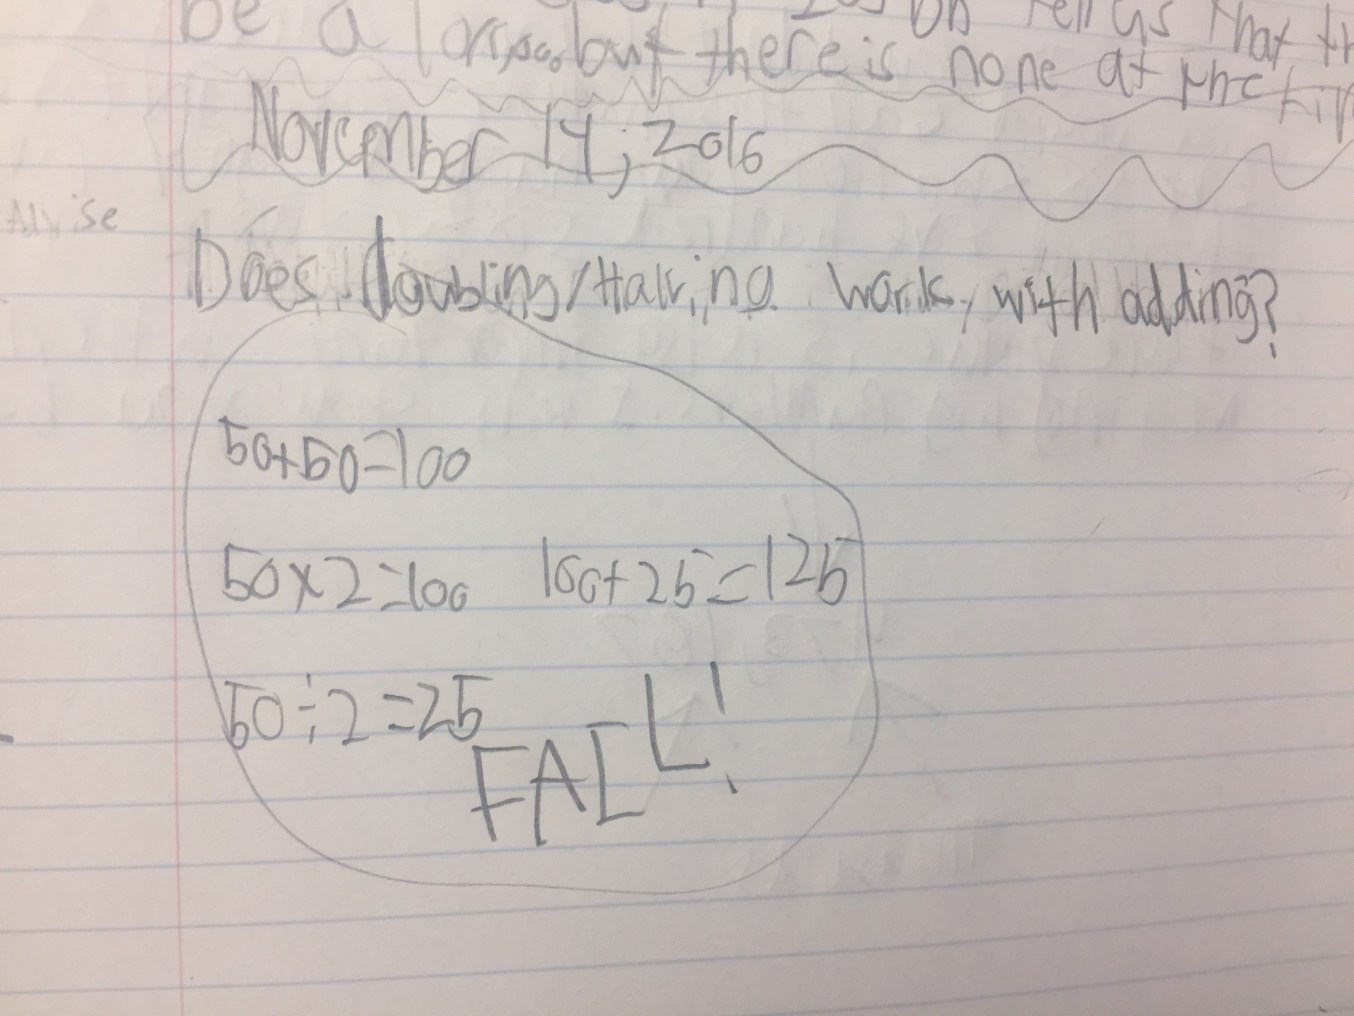 be a but there is none at the
November 14, 2016
Does doubling/Halving work, with adding?
50+50=100
50×2=100 100+25=125
50÷2=25
FAIL!